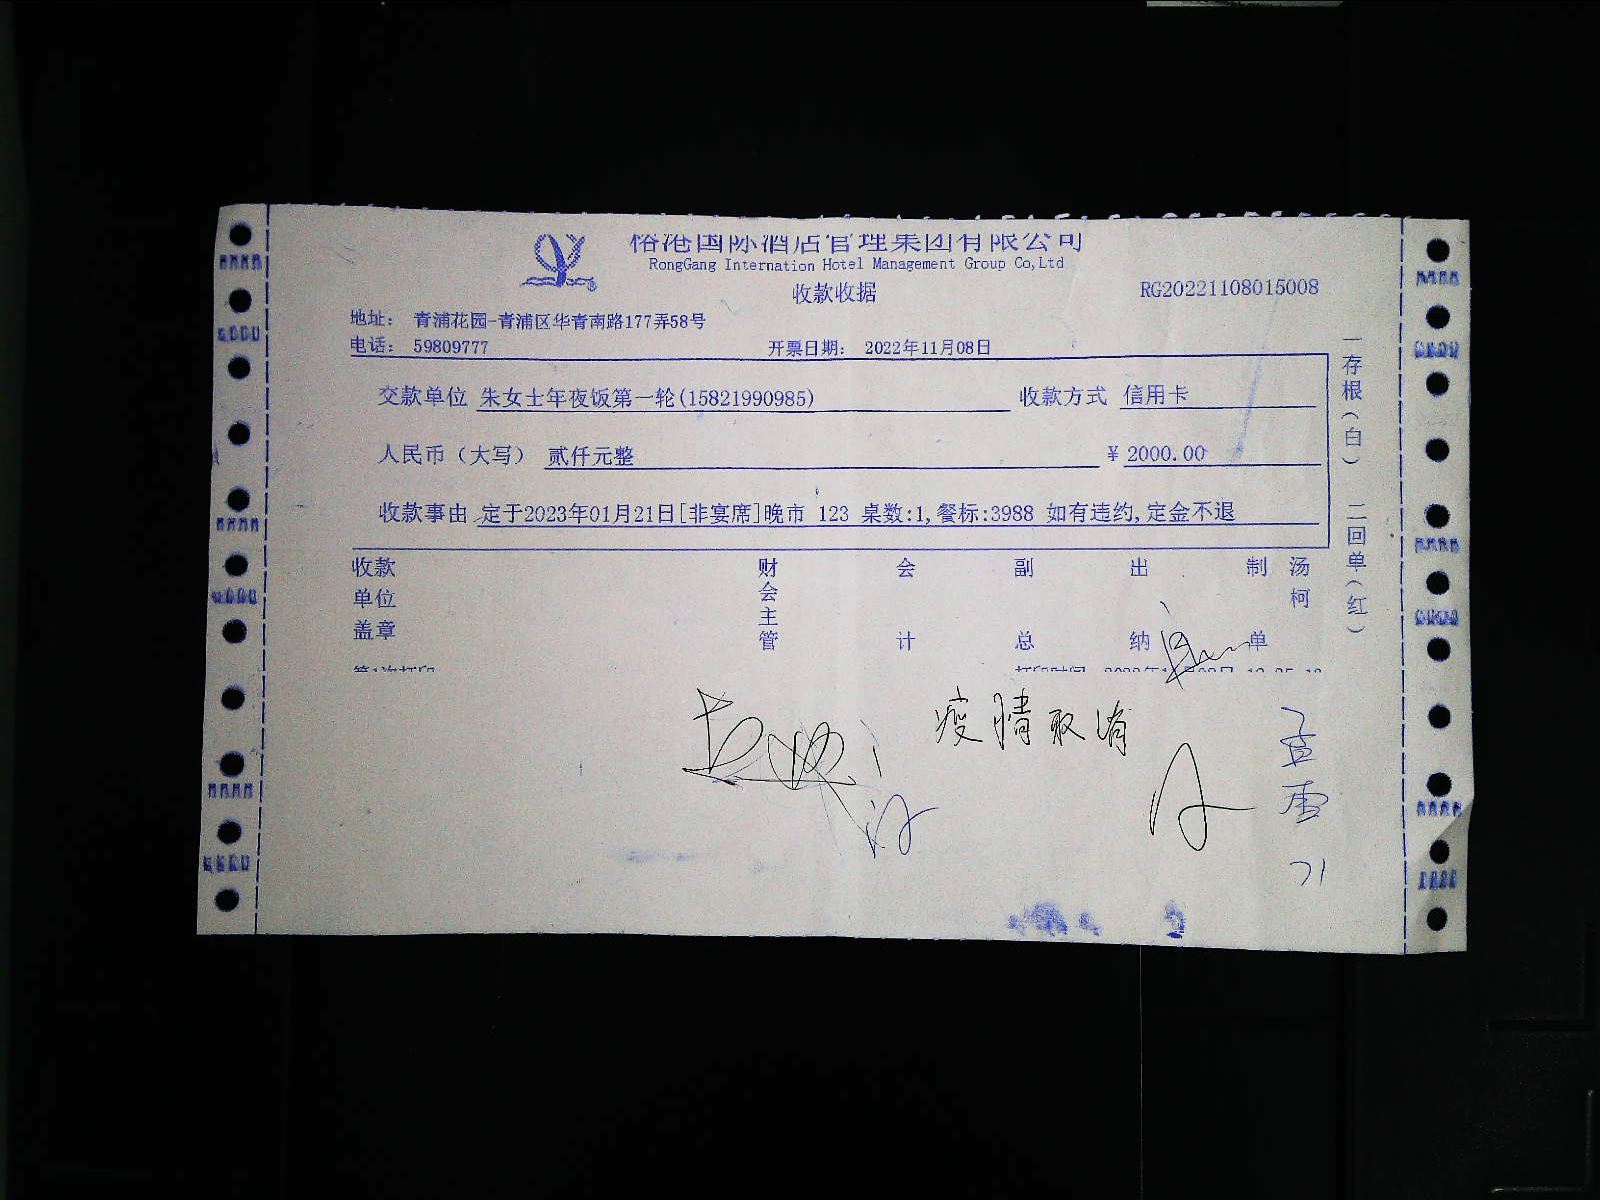 榕港国际酒店管理集团有限公司
RongGang Internation Hotel Management Group Co,Ltd
收款收据
RG20221108015008
地址： 青浦花园-青浦区华青南路177弄58号
电话： 59809777 开票日期： 2022年11月08日
交款单位 朱女士年夜饭第一轮(15821990985) 收款方式 信用卡
人民币（大写） 贰仟元整 ¥ 2000.00
收款事由 定于2023年01月21日[非宴席]晚市 123 桌数:1,餐标:3988 如有违约,定金不退
收款单位盖章 财会主管 会计 副总 出纳 制单 汤柯
一存根（白） 二回单（红）
疫情取消